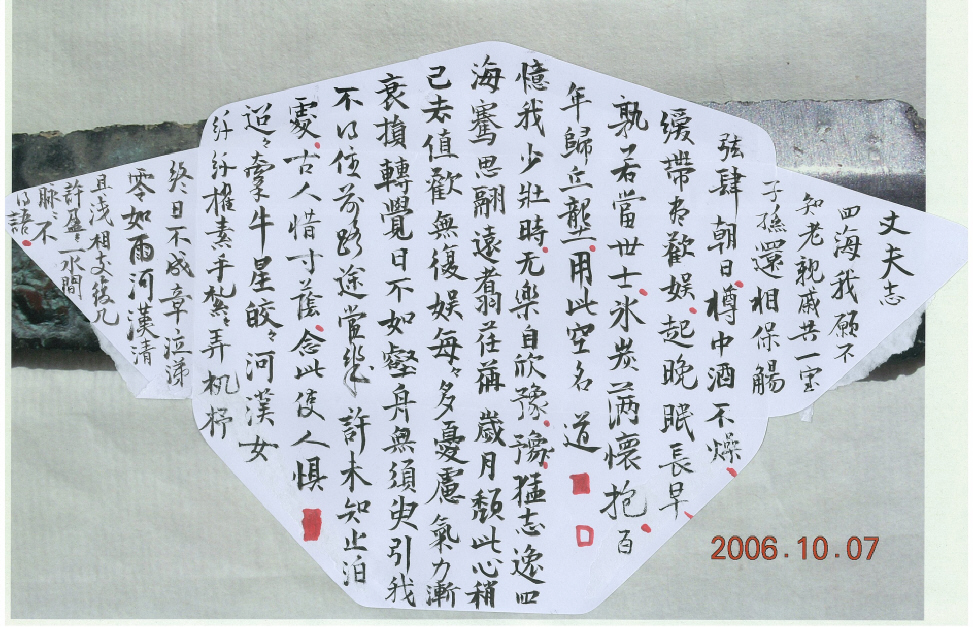 丈夫志
四海我願不
知老親戚共一室
子孫還相保觴
弦肆朝日樽中酒不燥
緩帶盡歡娱起晚眠長早
孰若當世士氷炭满懷抱百
年歸丘壟用此空名道
憶我少壯時无樂自欣豫豫猛志逸四
海騫思翮遠翥荏苒歲月頽此心稍
已去值歡無復娱每々多憂慮氣力漸
衰損轉覺日不如壑舟無須臾引我
不得住前路途當幾許未知止泊
處古人惜寸蔭念此使人懼
迢々牽牛星皎々河漢女
纤纤擢素手札々弄机杼
終日不成章泣涕
零如雨河漢清
且浅相去復几
許盈々一水間
脉々不
得語
2006.10.07